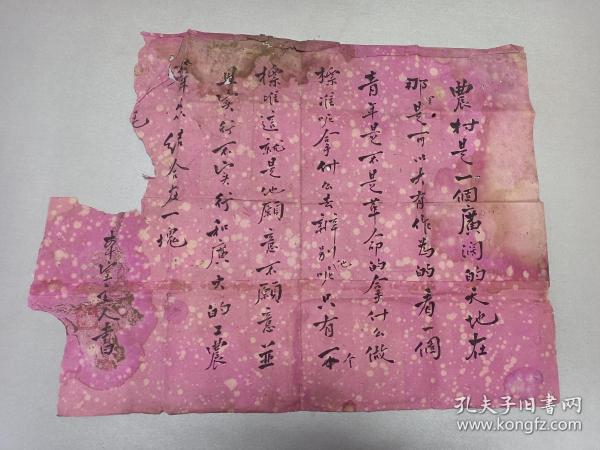 農村是一個廣闊的天地在
那里是可以大有作為的看一個
青年是不是革命的拿什么做
標准呢拿什么去辨别他呢只有一个
標准這就是他願意不願意並
且实行不实行和廣大的工農
羣众結合在一塊
書
孔夫子旧書网
www.kongfz.com